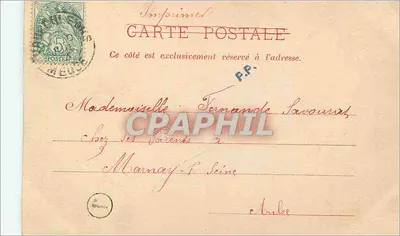 Imprimés
CARTE POSTALE
Ce côté est exclusivement réservé à l'adresse.
P.P.
MEUSE
Mademoiselle Fernande Savourat
CPARAMA
Chez ses Parents à
Marnay s/ Seine
Aube